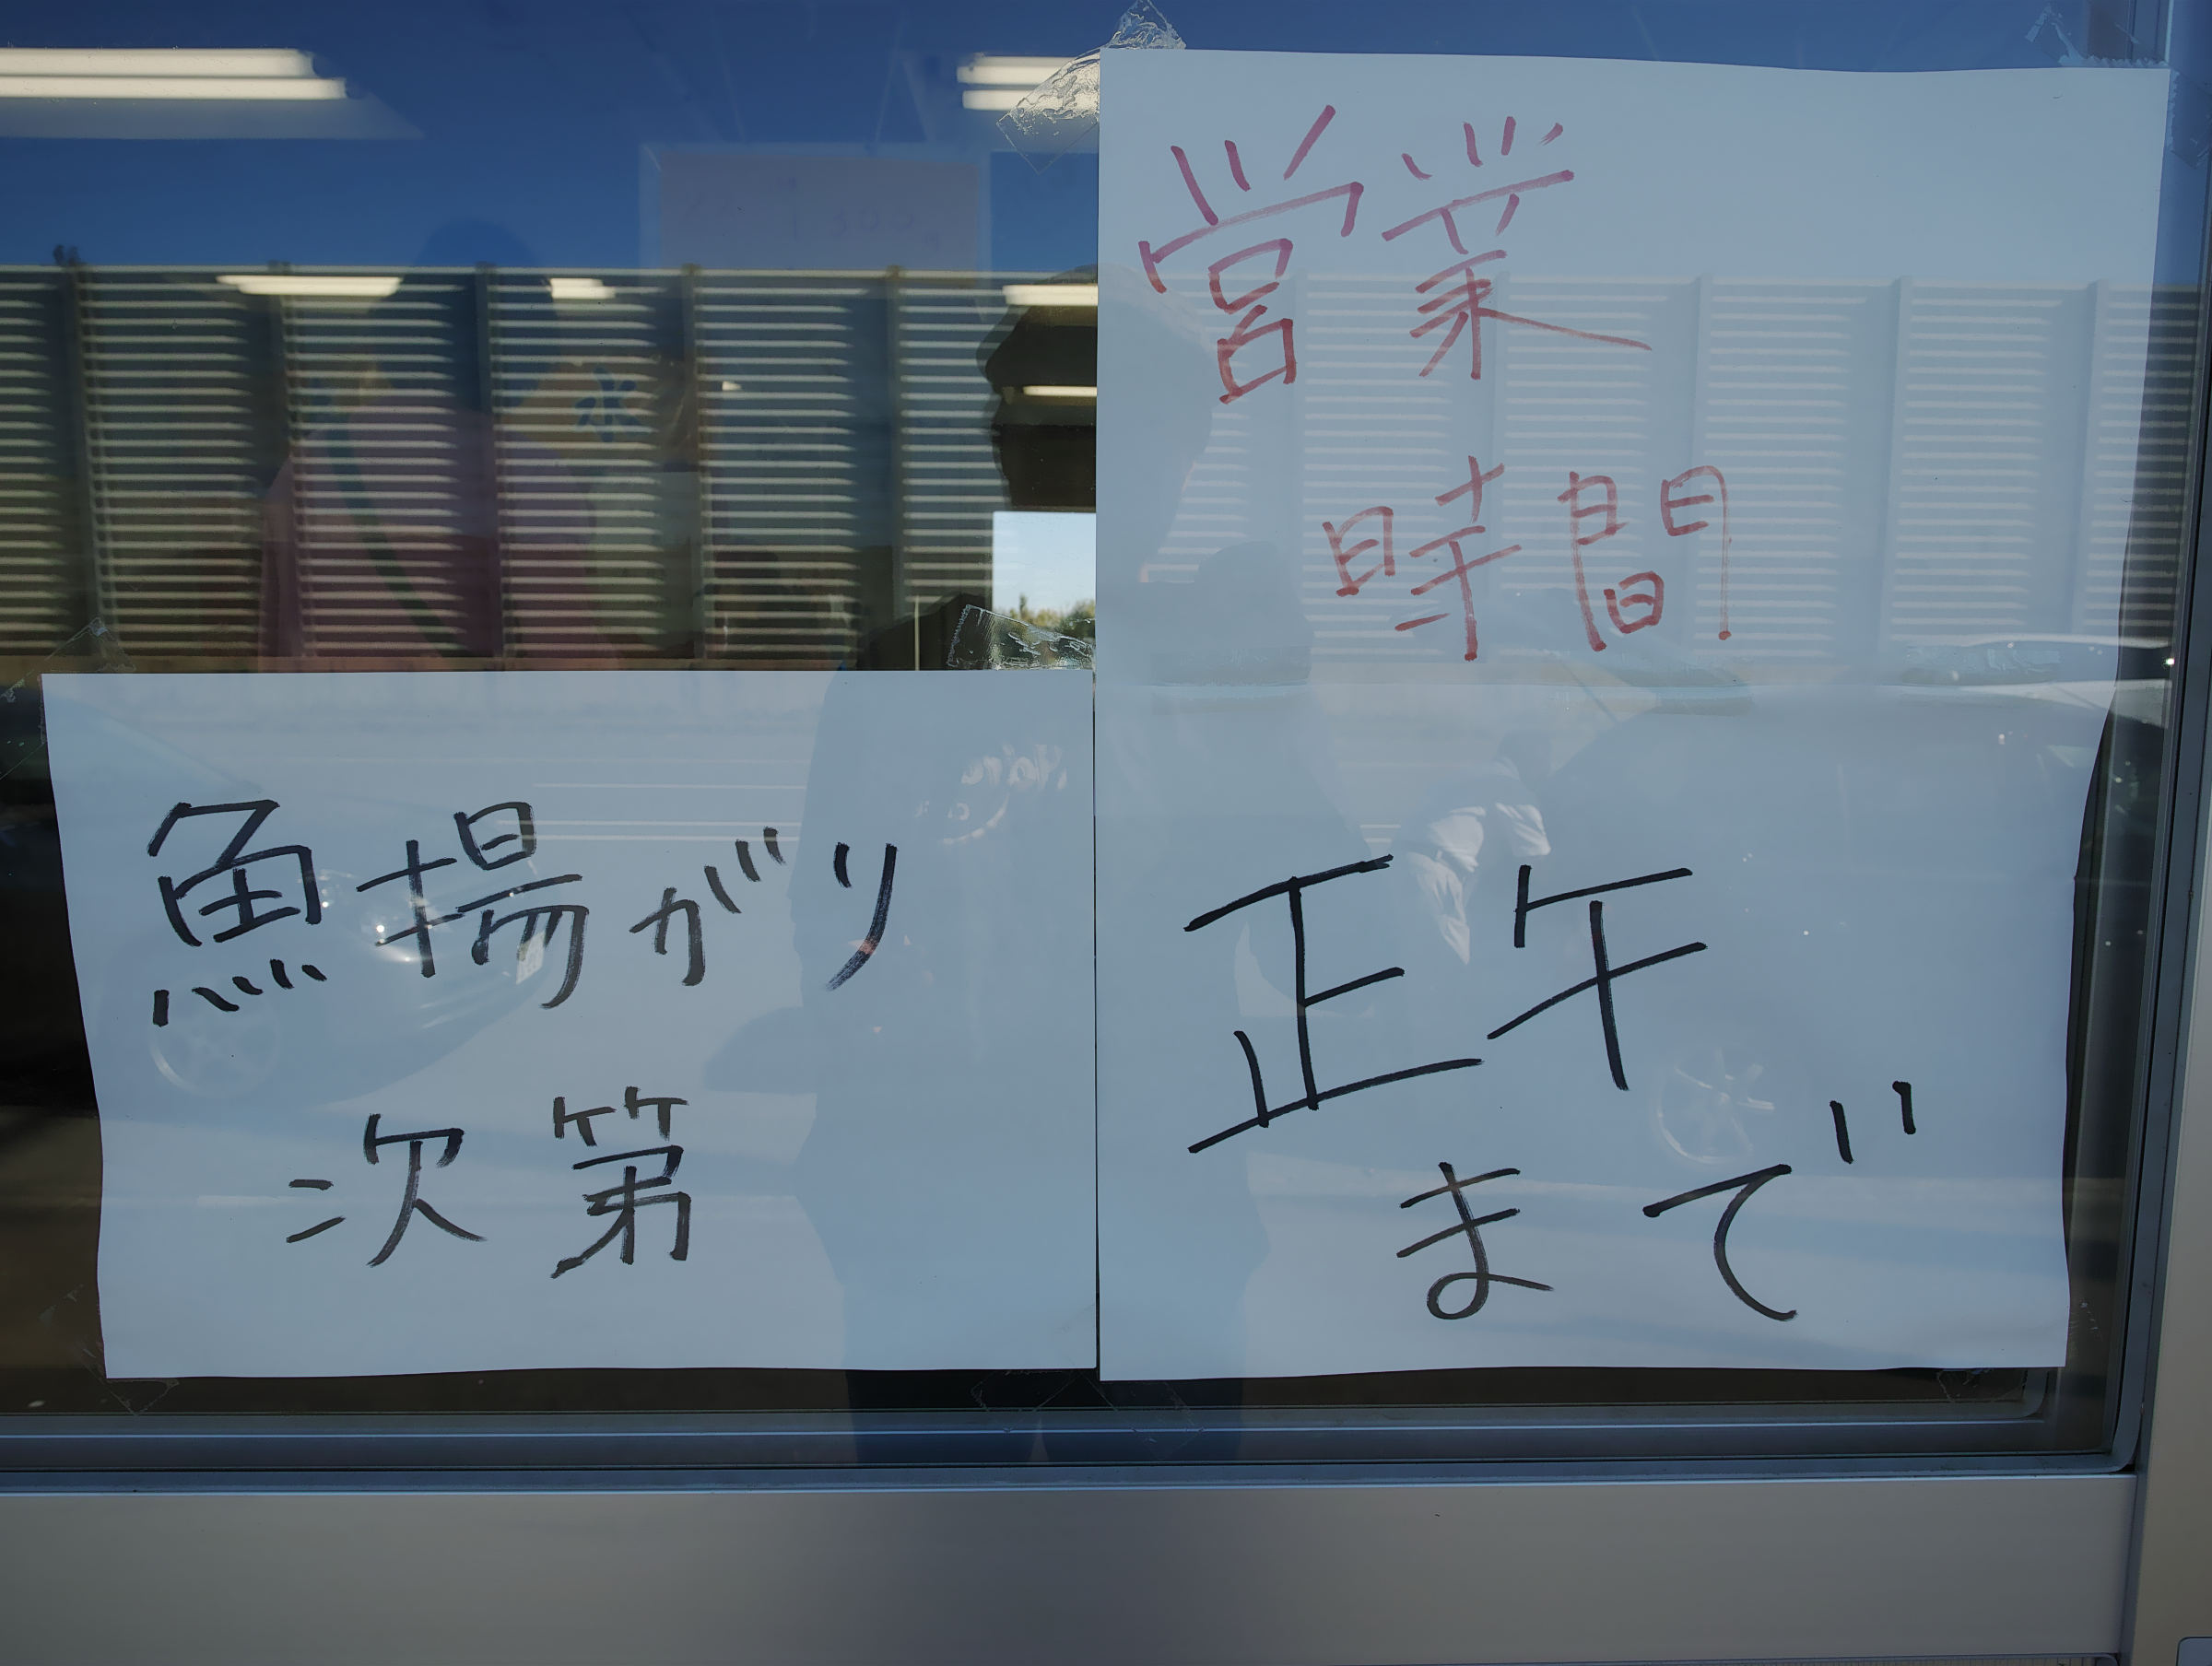 営業
時間
正午
まで
魚揚がり
次第
水